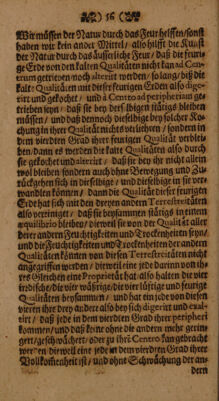 56
Wir müssen der Natur durch das Feur helffen/sonst
haben wir kein ander Mittel/ also hilfft die Kunst
der Natur durch das äusserliche Feur/ daß die feuri-
ge Erde von den kalten Qualitäten nicht kan ad Cen-
trum getrieben noch alterirt werden/ so lang/ biß die
kalte Qualitäten mit dieser feurigen Erden also dige-
rirt und gekochet/ und à Centro ad peripheriam ge-
trieben seyn/ daß sie bey derselbigen stätigs bleiben
müssen/ und daß dennoch dieselbige bey solcher Ko-
chung in ihrer Qualität nichts verliehren/ sondern in
dem vierdten Grad ihrer feurigen Qualität verblei-
ben/dann es werden die kalte Qualitäten also durch
sie gekochet und alterirt/ daß sie bey ihr nicht allein
wol bleiben sondern auch ohne Bewegung und Zu-
rückgehen sich in dieselbige/ und dieselbige in sie ver-
wandlen können/ dann die Qualität dieser feurigen
Erde hat sich mit den dreyen andern Terrestritäten
also vereiniget/ daß sie beysammen stätigs in einem
æquilibrio bleiben/ dieweil sie von der Qualität aller
dreyer andern Feuchtigkeiten und Trockenheiten seyn/
und die Feuchtigkeiten und Trockenheiten der andern
Qualitäten können von diesen Terrestreitäten nicht
angegriffen werden/ dieweil eine jede darinn von ih-
res Gleichen eine Proprietät hat/ also halten die vier
irrdische/ die vier wäßrige/ die vier lüfftige und feurige
Qualitäten beysammen/ und hat ein jede von diesen
vieren ihre drey andere also bey sich digerirt und exal-
tirt/ daß jede in dem vierdten Grad ihrer peripheri
kommen/ und daß keine ohne die andern mehr gerin-
gert/geschwächert/ oder zu ihri Centro kan gebracht
werden/ dieweil eine jede in dem vierdten Grad ihrer
Vollkommenheit ist/ und ohne Schwächung der an-
dern